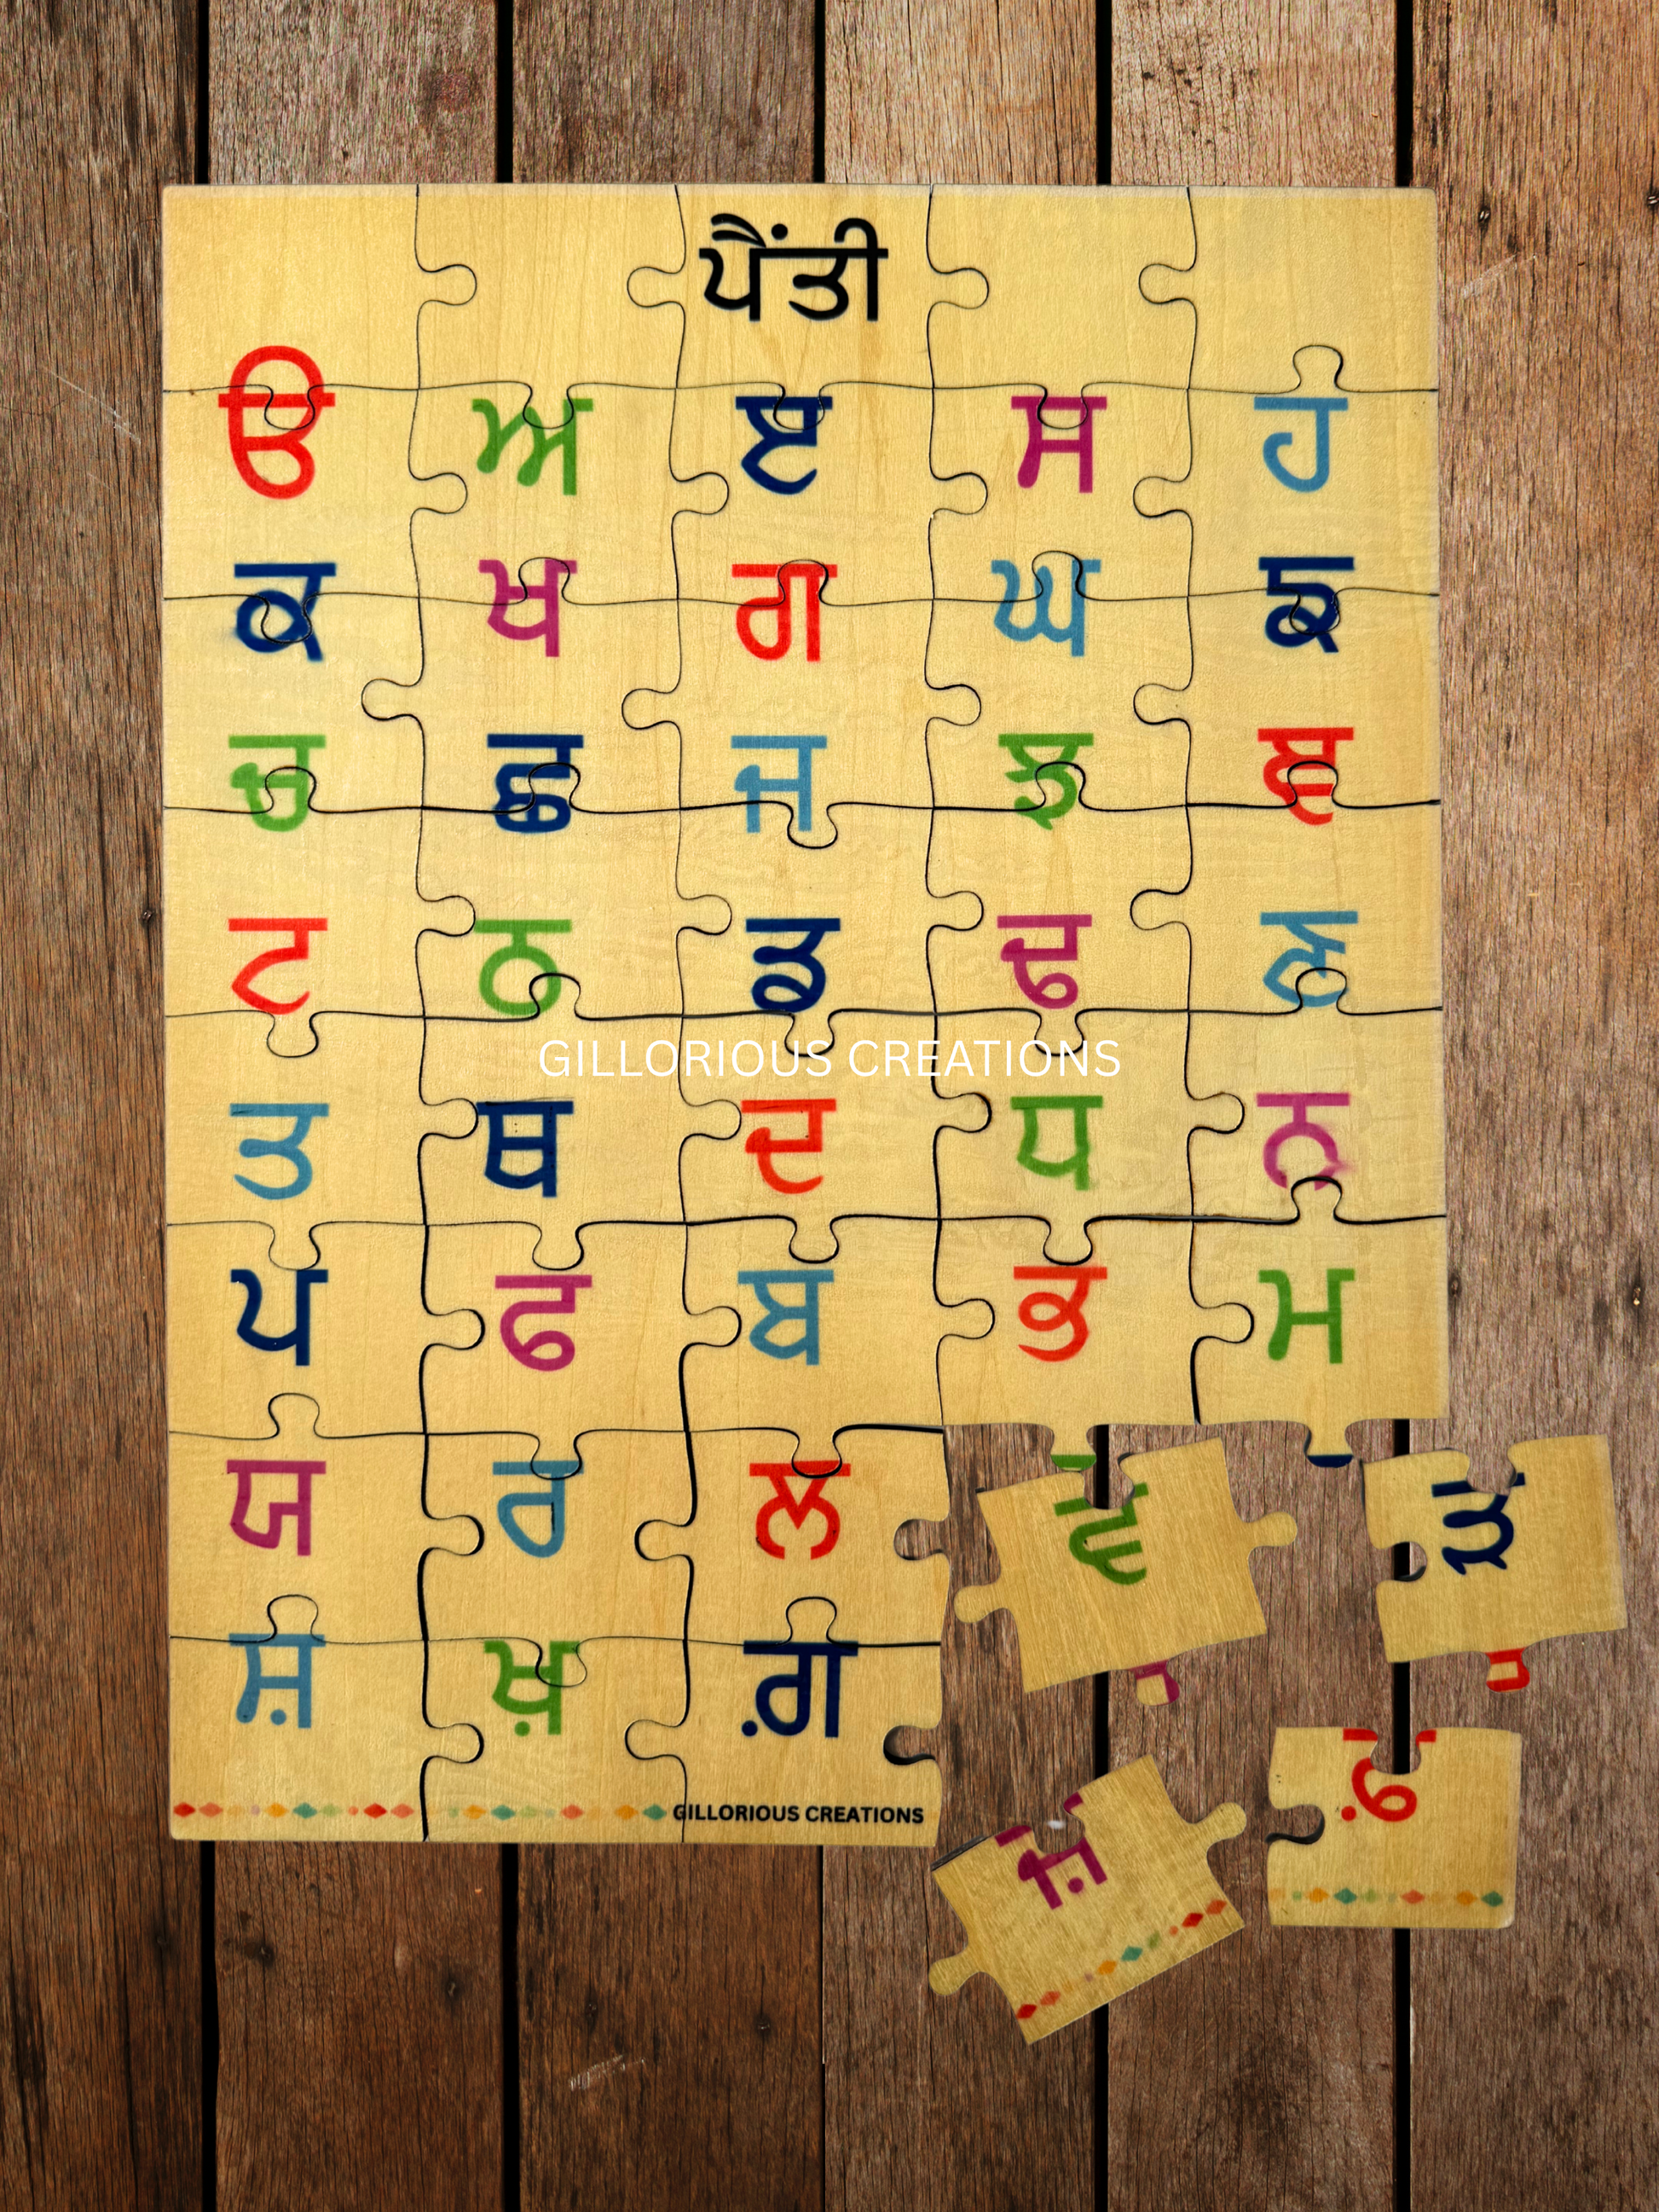 ਪੈਂਤੀ
ੳ ਅ ੲ ਸ ਹ
ਕ ਖ ਗ ਘ ਙ
ਚ ਛ ਜ ਝ ਞ
ਟ ਠ ਡ ਢ ਣ
GILLORIOUS CREATIONS
ਤ ਥ ਦ ਧ ਨ
ਪ ਫ ਬ ਭ ਮ
ਯ ਰ ਲ ਵ ੜ
ਸ਼ ਖ਼ ਗ਼ ਜ਼ ਫ਼
GILLORIOUS CREATIONS